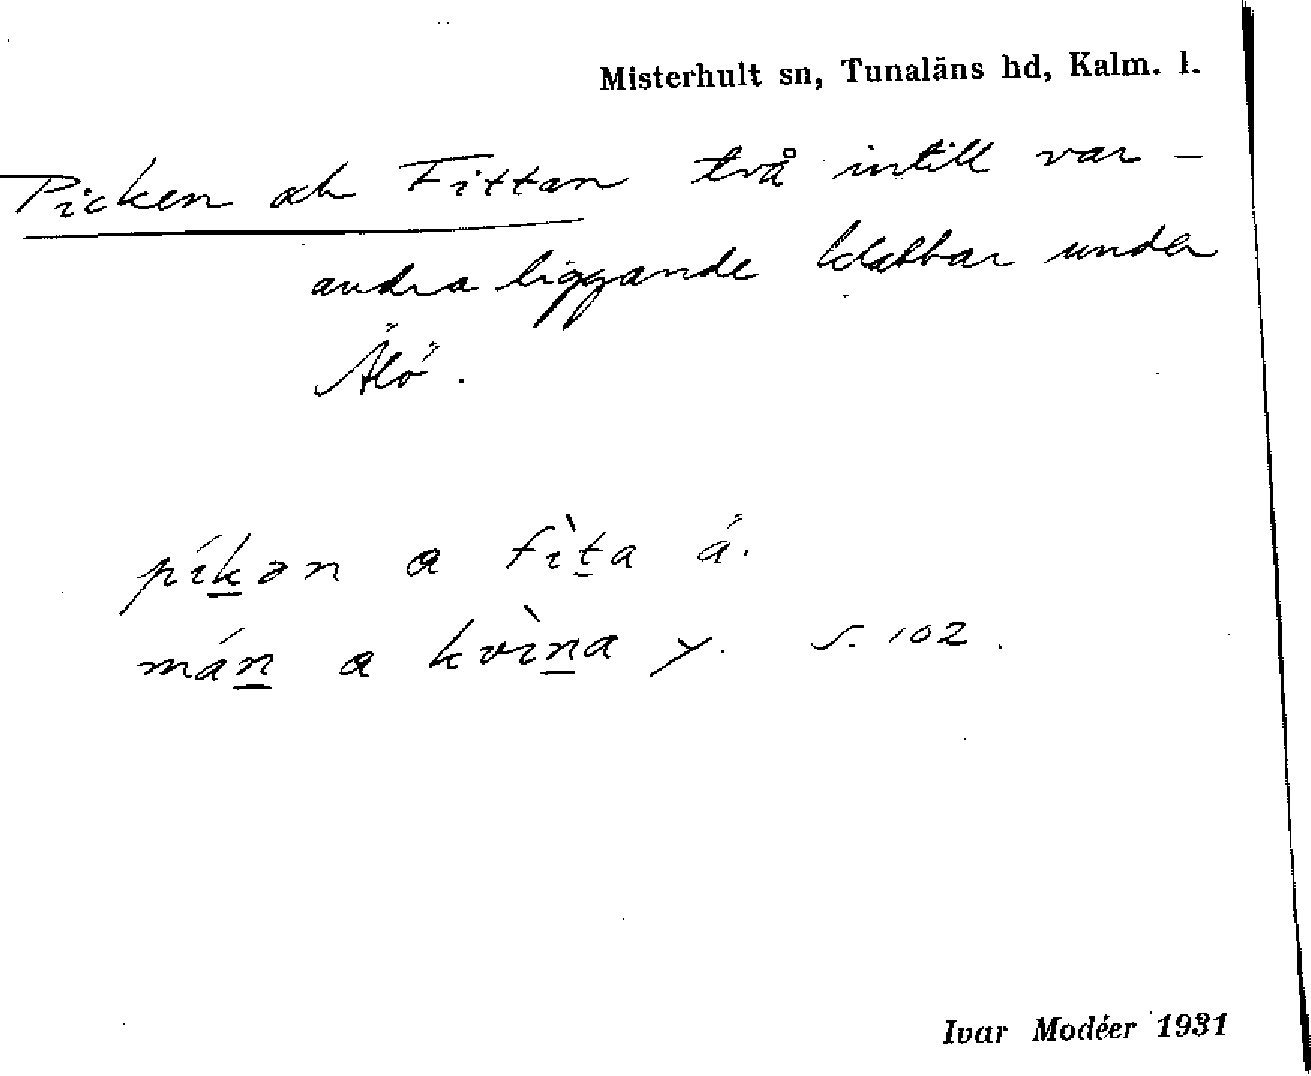 Misterhult sn, Tunaläns hd, Kalm. l.
Picken och Fittan två intill var-
andra liggande klabbar under
Älö.
píkən a fìta á.
mán a kvìna y. s. 102.
Ivar Modéer 1931